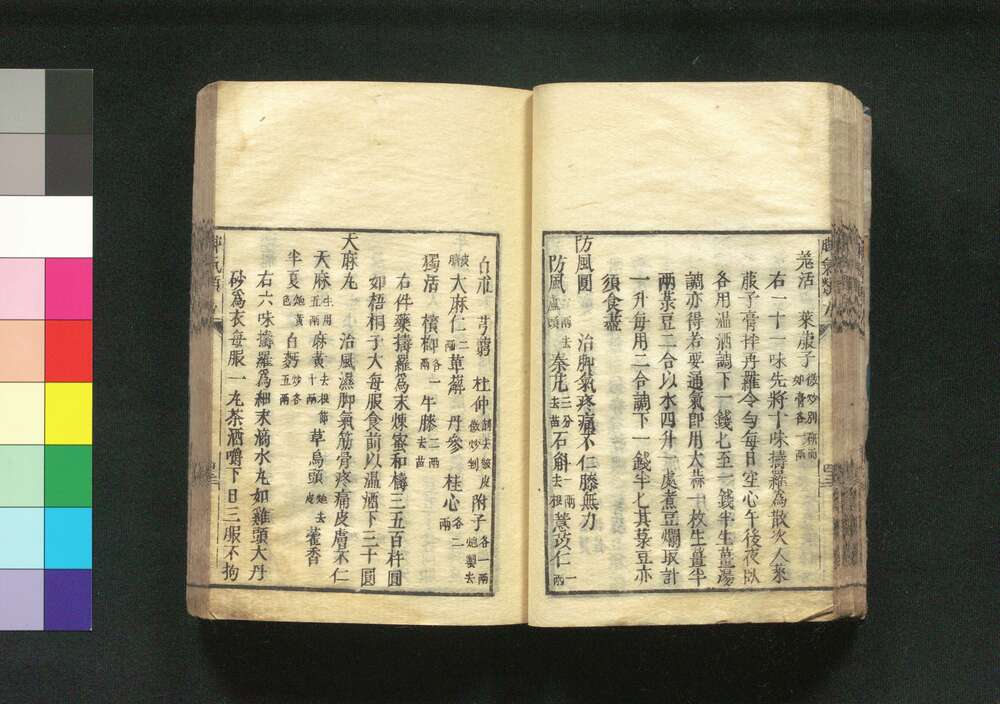 羗活 萊菔子微炒別研膏各一兩
右一十一味先將十味擣羅為散次入萊
菔子膏拌再羅令勻每日空心午後夜臥
各用温酒調下一錢匕至一錢半生薑湯
調亦得若要通氣即用大蒜一枚生薑半
兩菉豆二合以水四升一處煮豆爛取計
一升每用二合調下一錢半匕其菉豆亦
須食盡
防風圓 治脚氣疼痛不仁膝無力
防風一兩去蘆頭 秦艽三分去苗 石斛一兩去根 薏苡仁一兩
白朮 芎藭 杜仲剉去皴皮微炒 附子各一兩炮製去
皮臍 大麻仁二兩 萆薢 丹參 桂心各二兩
獨活 檳榔各一兩 牛膝二兩去苗
右件藥擣羅爲末煉蜜和擣三五百杵圓
如梧桐子大每服食前以温酒下三十圓
天麻丸 治風濕脚氣筋骨疼痛皮膚不仁
天麻生用五兩 麻黃去根節十兩 草烏頭炮去皮 藿香
半夏炮黃色 白麪炒各五兩
右六味擣羅爲細末滴水丸如雞頭大丹
砂爲衣每服一丸茶酒嚼下日三服不拘